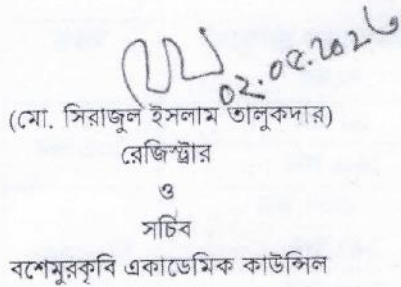 ০২.০৫.২০২৬
(মো. সিরাজুল ইসলাম তালুকদার)
রেজিস্ট্রার
ও
সচিব
বশেমুরকৃবি একাডেমিক কাউন্সিল